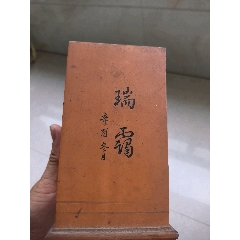 瑞靄
辛酉冬月